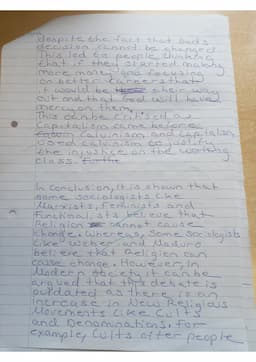 despite the fact that God's
decision cannot be changed.
This led to people thinking
that if they started making
more money and focusing
on better careers that
it would be their way
out and that God will have
mercy on them.
This can be critised as
Capitalism came before
Calvinism and capitalism
used calvinism to justify
the injustice on the working
class.
In conclusion, It is shown that
some sociologists like
Marxists, feminists and
Functionalists believe that
Religion cannot cause
change. Whereas, some sociologists
like weber and Maduro
believe that Religion can
cause change. However, in
Modern society it can be
argued that this debate is
outdated as there is an
increase in New Religious
Movements like Cults
and Denominations. For
example, Cults offer people